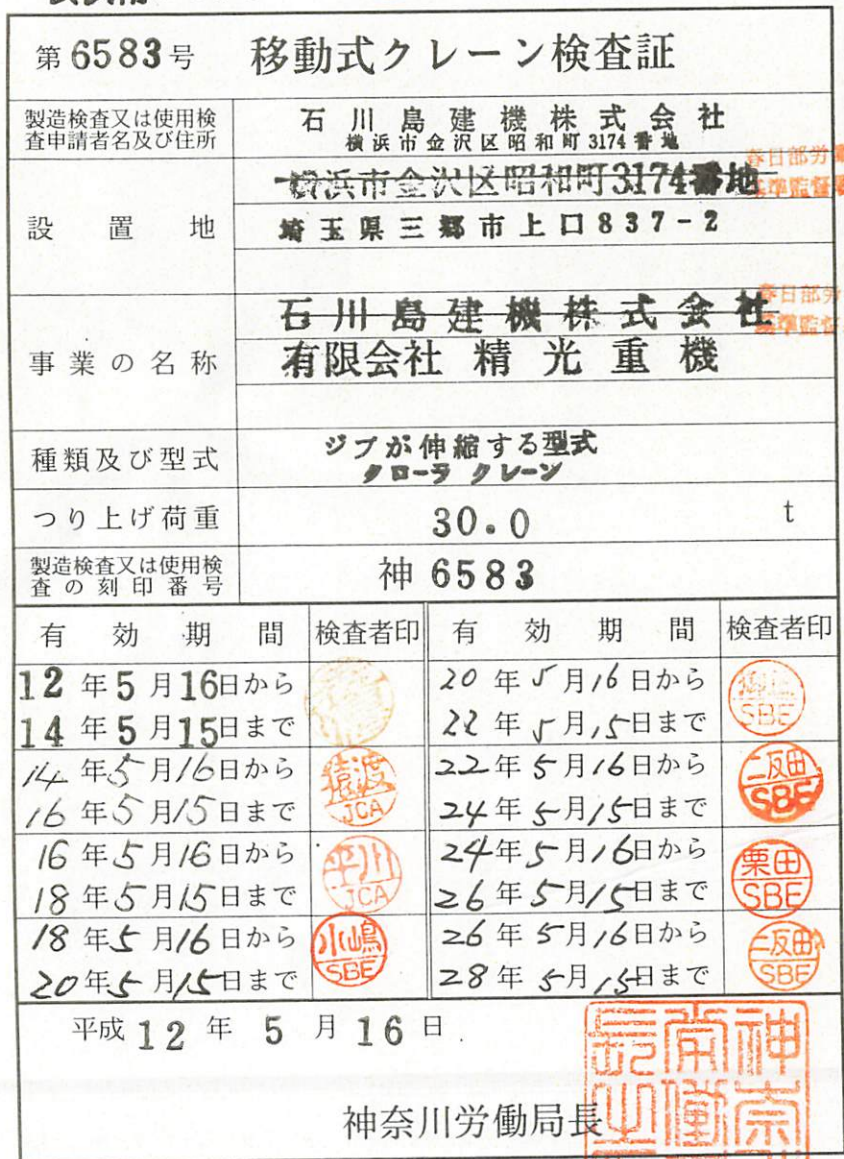 第6583号 移動式クレーン検査証
製造検査又は使用検
査申請者名及び住所
石川島建機株式会社
横浜市金沢区昭和町3174番地
設置地
横浜市金沢区昭和町3174番地
春日部労
基準監督
埼玉県三郷市上口837-2
事業の名称
石川島建機株式会社
春日部労
基準監督
有限会社 精光重機
種類及び型式
ジブが伸縮する型式
クローラ クレーン
つり上げ荷重 30.0 t
製造検査又は使用検
査の刻印番号
神 6583
有効期間 検査者印 有効期間 検査者印
12年5月16日から
14年5月15日まで
20年5月16日から
22年5月15日まで
SBE
14年5月16日から
16年5月15日まで
猿渡
JCA
22年5月16日から
24年5月15日まで
二反田
SBE
16年5月16日から
18年5月15日まで
平川
JCA
24年5月16日から
26年5月15日まで
栗田
SBE
18年5月16日から
20年5月15日まで
小嶋
SBE
26年5月16日から
28年5月15日まで
二反田
SBE
平成12年5月16日
神奈川労働局長